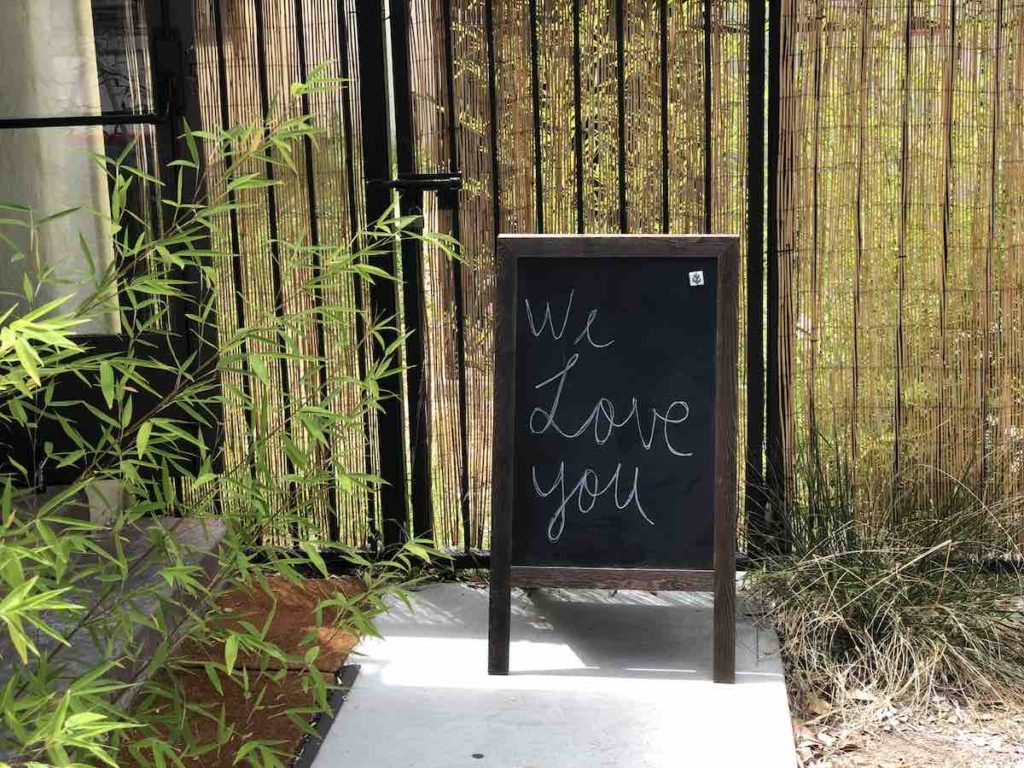 We
Love
you